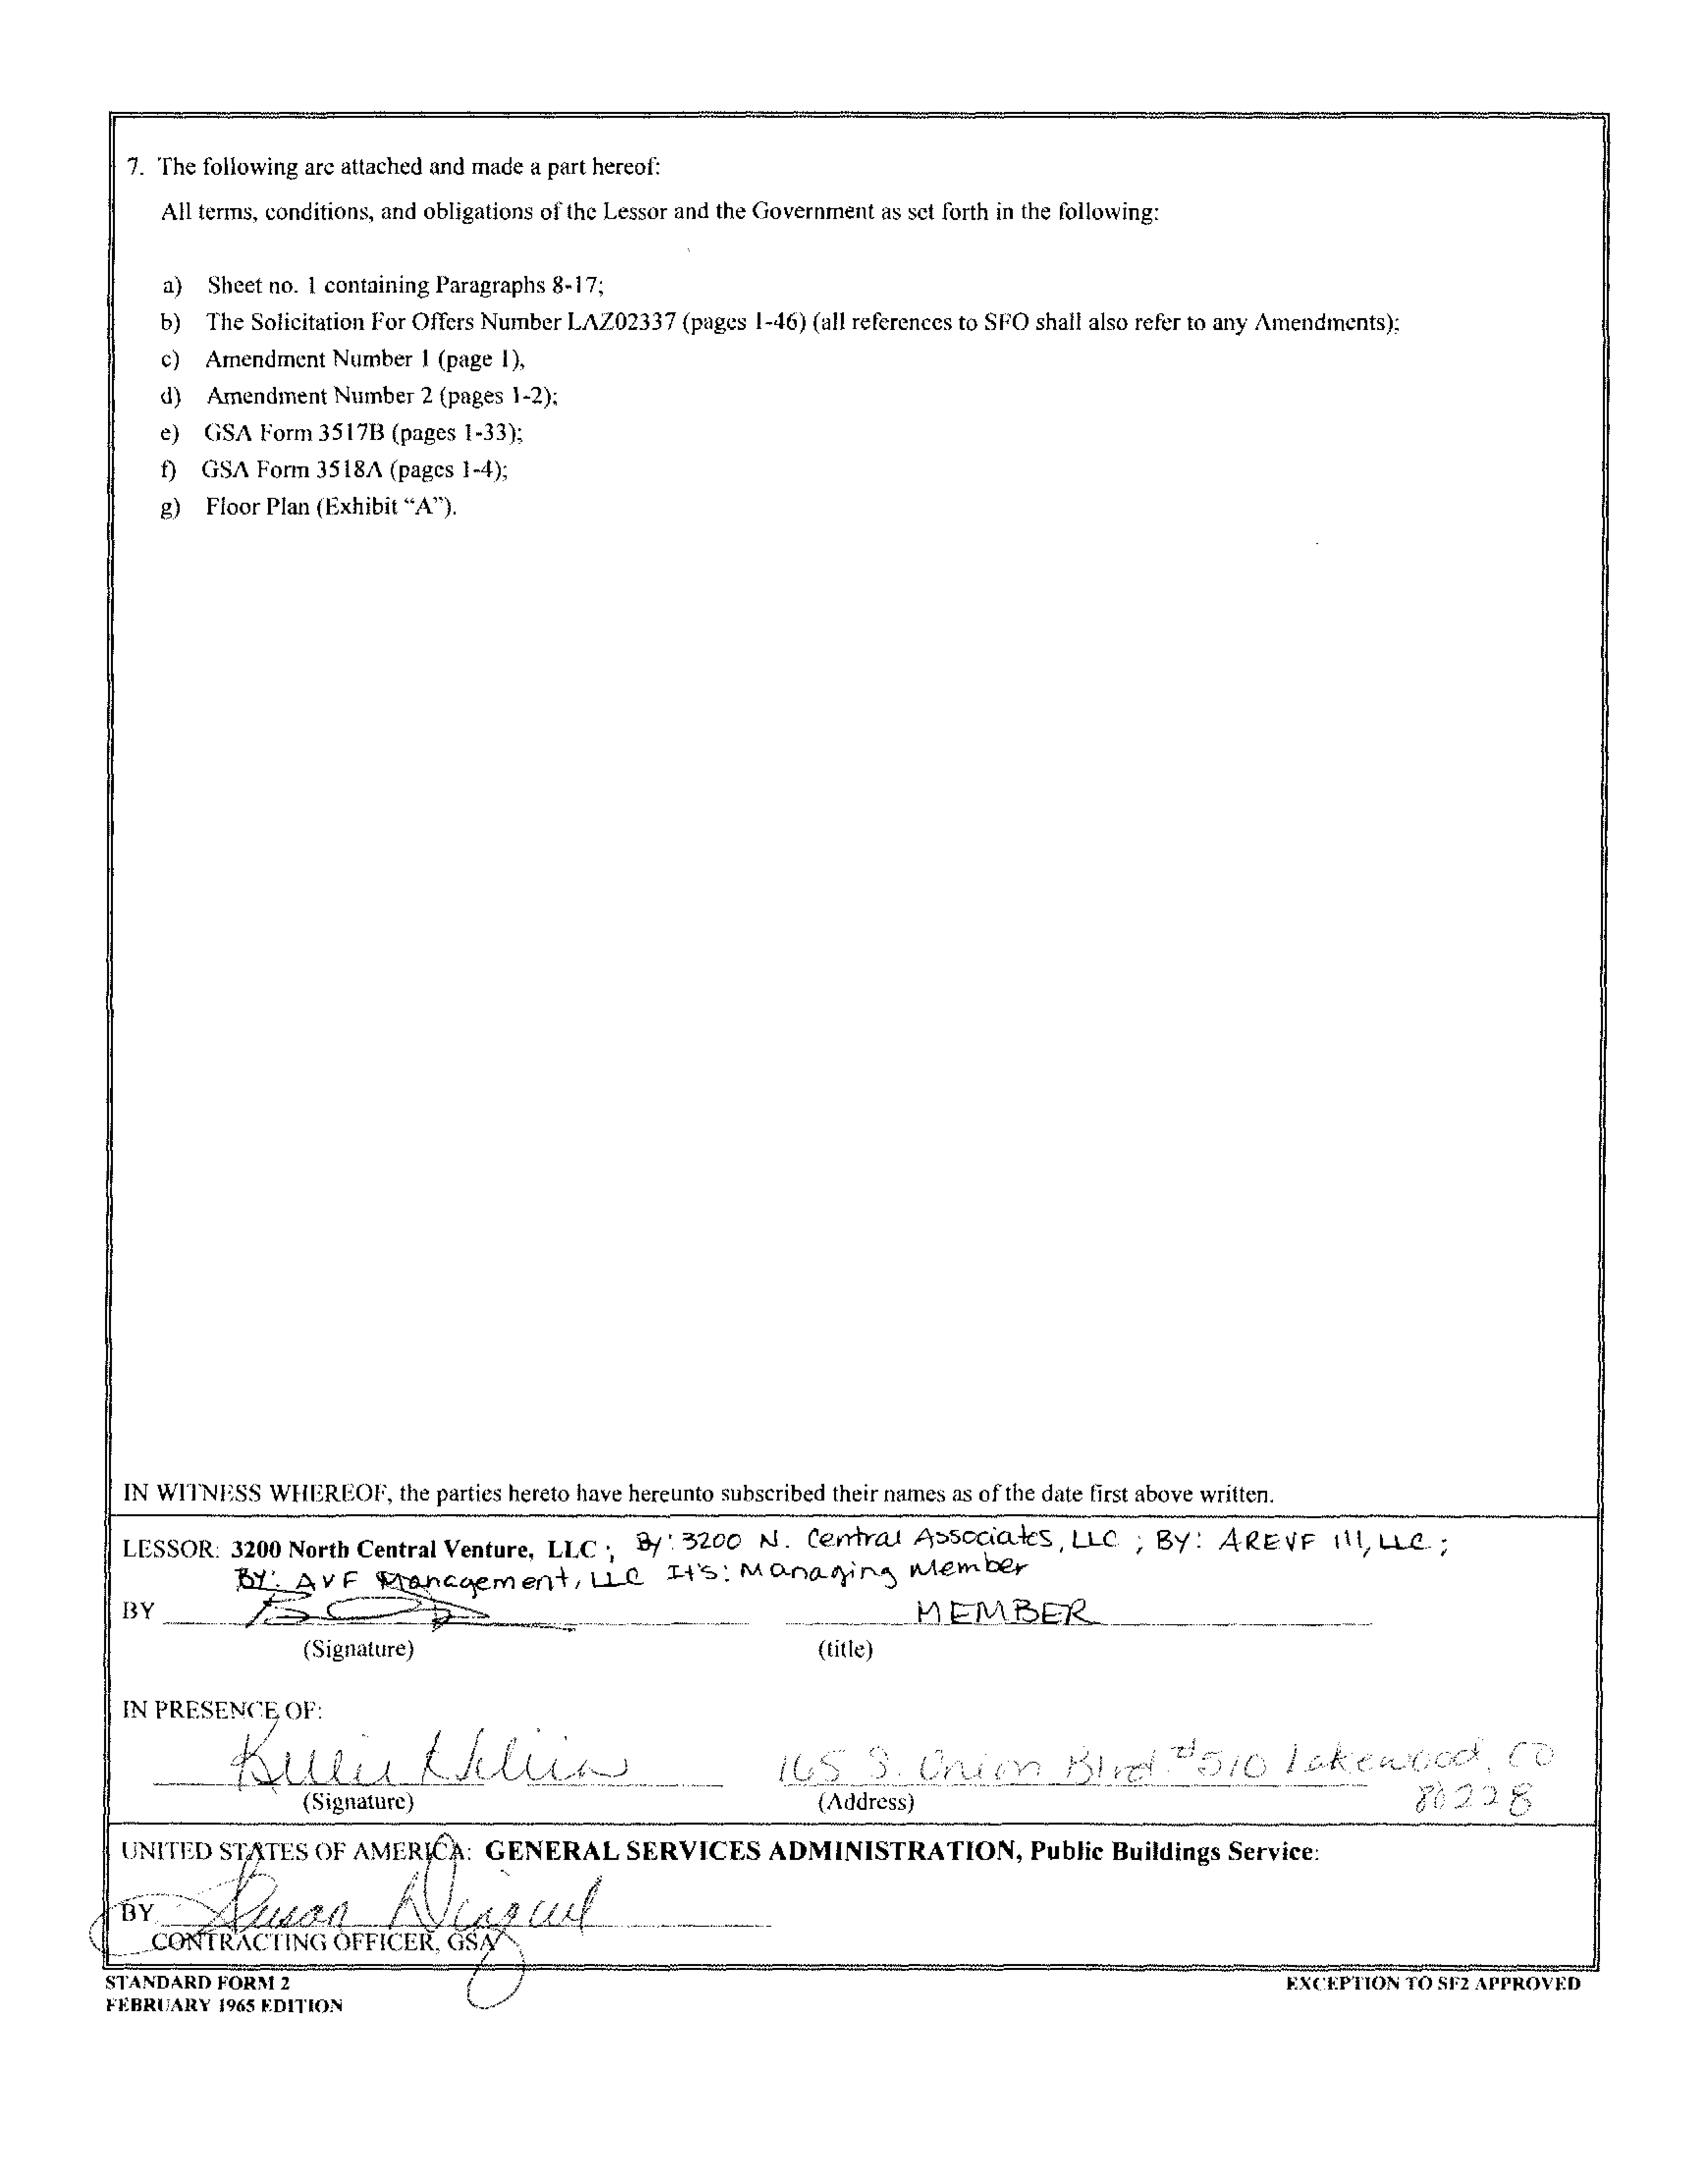 7. The following are attached and made a part hereof:
All terms, conditions, and obligations of the Lessor and the Government as set forth in the following:
a) Sheet no. 1 containing Paragraphs 8-17;
b) The Solicitation For Offers Number LAZ02337 (pages 1-46) (all references to SFO shall also refer to any Amendments);
c) Amendment Number 1 (page 1),
d) Amendment Number 2 (pages 1-2);
e) GSA Form 3517B (pages 1-33);
f) GSA Form 3518A (pages 1-4);
g) Floor Plan (Exhibit “A”).
IN WITNESS WHEREOF, the parties hereto have hereunto subscribed their names as of the date first above written.
LESSOR: 3200 North Central Venture, LLC ; By: 3200 N. Central Associates, LLC ; BY: AREVF III, LLC ;
BY: AVF Management, LLC It's: Managing Member
BY MEMBER
(Signature) (title)
IN PRESENCE OF:
165 S. Union Blvd. #510 Lakewood, CO
80228
(Signature) (Address)
UNITED STATES OF AMERICA: GENERAL SERVICES ADMINISTRATION, Public Buildings Service:
BY Susan
CONTRACTING OFFICER, GSA
STANDARD FORM 2 EXCEPTION TO SF2 APPROVED
FEBRUARY 1965 EDITION